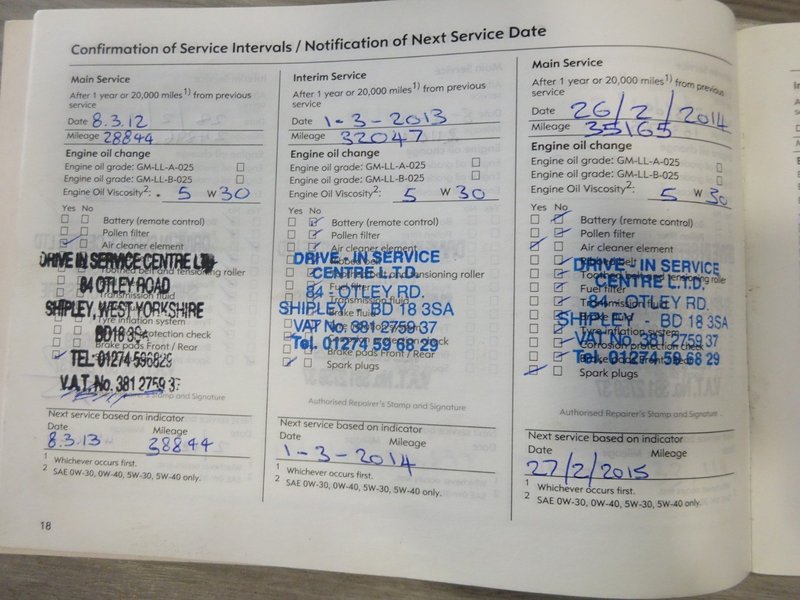 Confirmation of Service Intervals / Notification of Next Service Date
Main Service
After 1 year or 20,000 miles1) from previous
service
Date 8.3.12
Mileage 28844
Engine oil change
Engine oil grade: GM-LL-A-025
Engine oil grade: GM-LL-B-025
Engine Oil Viscosity2: 5 W 30
Yes No
Battery (remote control)
Pollen filter
Air cleaner element
Toothed belt and tensioning roller
Transmission fluid
Tyre inflation system
protection check
Brake pads Front / Rear
Spark plugs
DRIVE IN SERVICE CENTRE LTD
84 OTLEY ROAD
SHIPLEY, WEST YORKSHIRE
BD18 3SA
TEL. 01274 596829
V.A.T. No. 381 2759 37
Stamp and Signature
Next service based on indicator
Date Mileage
8.3.13 28844
1 Whichever occurs first.
2 SAE 0W-30, 0W-40, 5W-30, 5W-40 only.
18
Interim Service
After 1 year or 20,000 miles1) from previous
service
Date 1-3-2013
Mileage 32047
Engine oil change
Engine oil grade: GM-LL-A-025
Engine oil grade: GM-LL-B-025
Engine Oil Viscosity2: 5 W 30
Yes No
Battery (remote control)
Pollen filter
Air cleaner element
tensioning roller
Fuel filter
Transmission fluid
Brake fluid
Brake pads Front / Rear
Spark plugs
DRIVE - IN SERVICE
CENTRE L.T.D.
84 - OTLEY RD.
SHIPLEY - BD 18 3SA
VAT No. 381 2759 37
Tel. 01274 59 68 29
Authorised Repairer's Stamp and Signature
Next service based on indicator
Date Mileage
1-3-2014
1 Whichever occurs first.
2 SAE 0W-30, 0W-40, 5W-30, 5W-40 only.
Main Service
After 1 year or 20,000 miles1) from previous
service
Date 26/2/2014
Mileage 35165
Engine oil change
Engine oil grade: GM-LL-A-025
Engine oil grade: GM-LL-B-025
Engine Oil Viscosity2: 5 W 30
Yes No
Battery (remote control)
Pollen filter
Air cleaner element
Fuel filter
Transmission fluid
Brake fluid
Tyre inflation system
Corrosion protection check
Spark plugs
DRIVE - IN SERVICE
CENTRE L.T.D.
84 - OTLEY RD.
SHIPLEY - BD 18 3SA
VAT No. 381 2759 37
Tel. 01274 59 68 29
Authorised Repairer's Stamp and Signature
Next service based on indicator
Date Mileage
27/2/2015
1 Whichever occurs first.
2 SAE 0W-30, 0W-40, 5W-30, 5W-40 only.